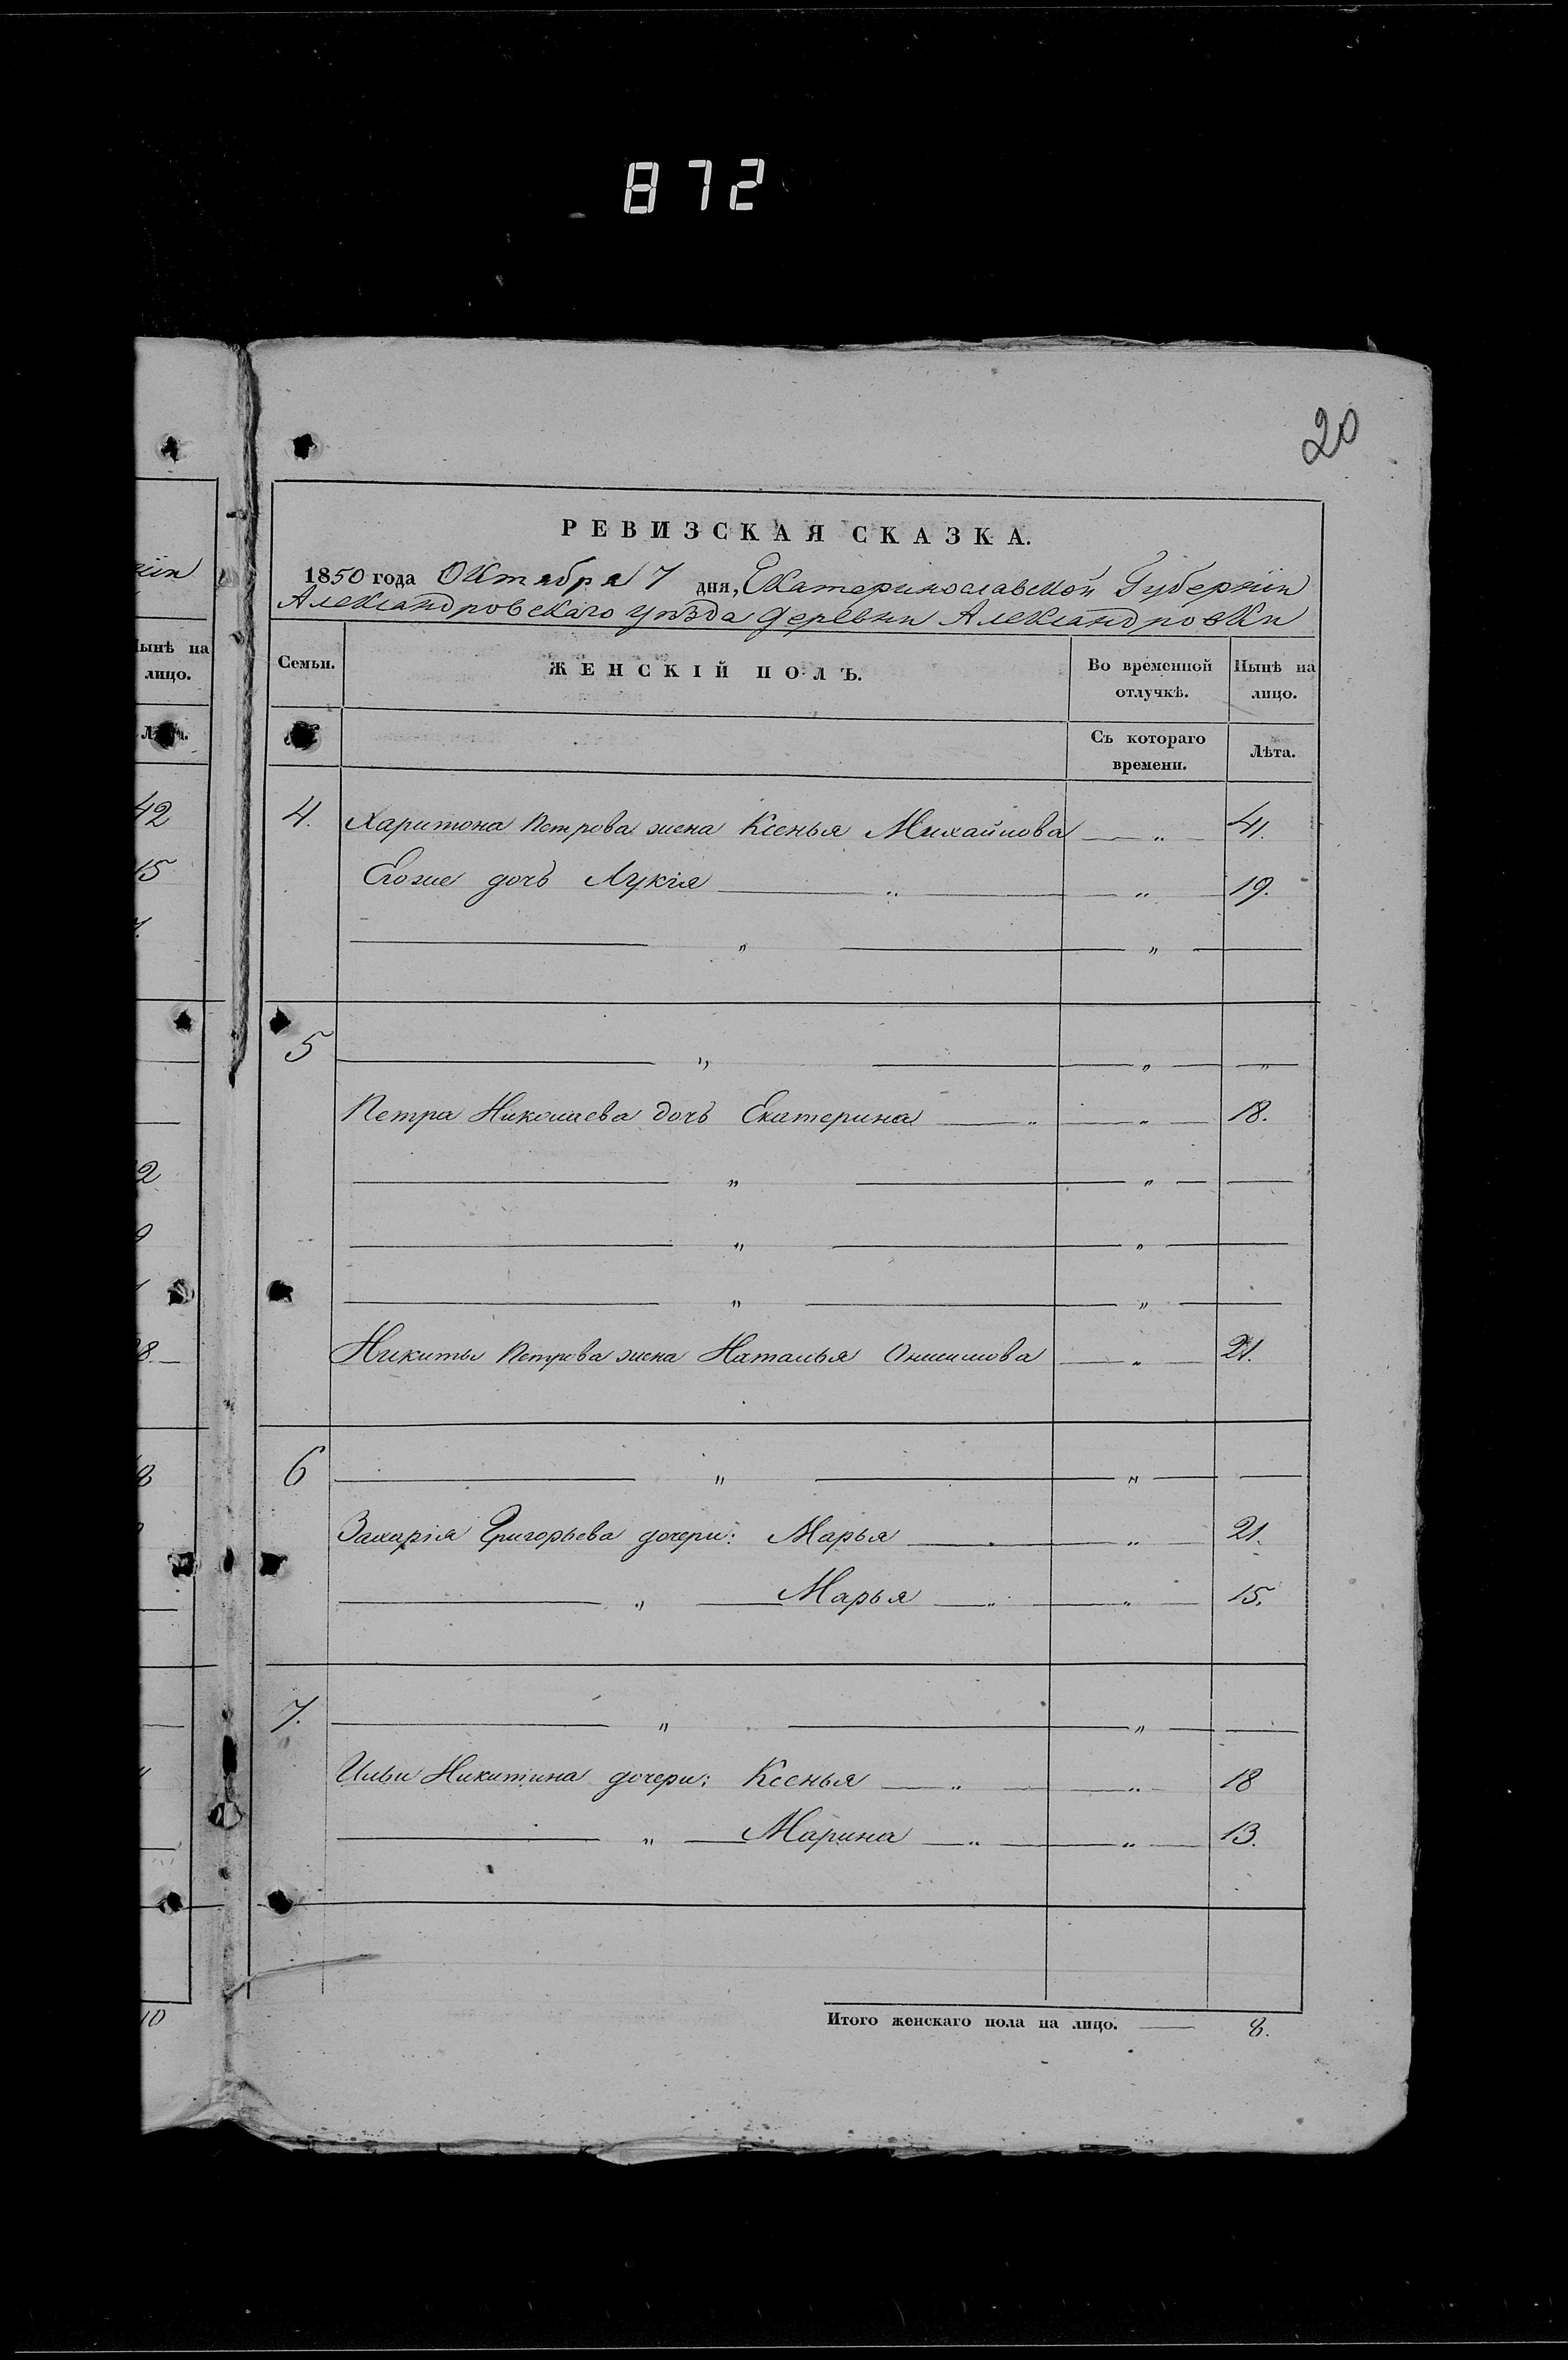 872
20
РЕВИЗСКАЯ СКАЗКА.
1850 года Октября 7 дня, Екатеринославской Губерніи
Александровскаго уѣзда деревни Александровки
Семьи. ЖЕНСКІЙ ПОЛЪ. Во временной отлучкѣ. Нынѣ на лицо.
№ Съ котораго времени. Лѣта.
4. Харитона Петрова жена Ксенья Михайлова — „ — 41.
Егоже дочь Лукія — „ — „ — 19.
— „ — „ —
5 — „ — „ — „ —
Петра Николаева дочь Екатерина — „ — „ — 18.
— „ — „ —
— „ — „ —
— „ — „ —
Никиты Петрова жена Наталья Онисимова — „ — 21.
6 — „ — „ —
Захарія Григорьева дочери: Марья — „ — 21.
— „ — Марья — „ — „ — 15.
7. — „ — „ —
Ильи Никитина дочери: Ксенья — „ — „ — 18
— „ — Марина — „ — „ — 13.
Итого женскаго пола на лицо. — 8.
ніи
Нынѣ на
лицо.
Лѣта.
42
15
10